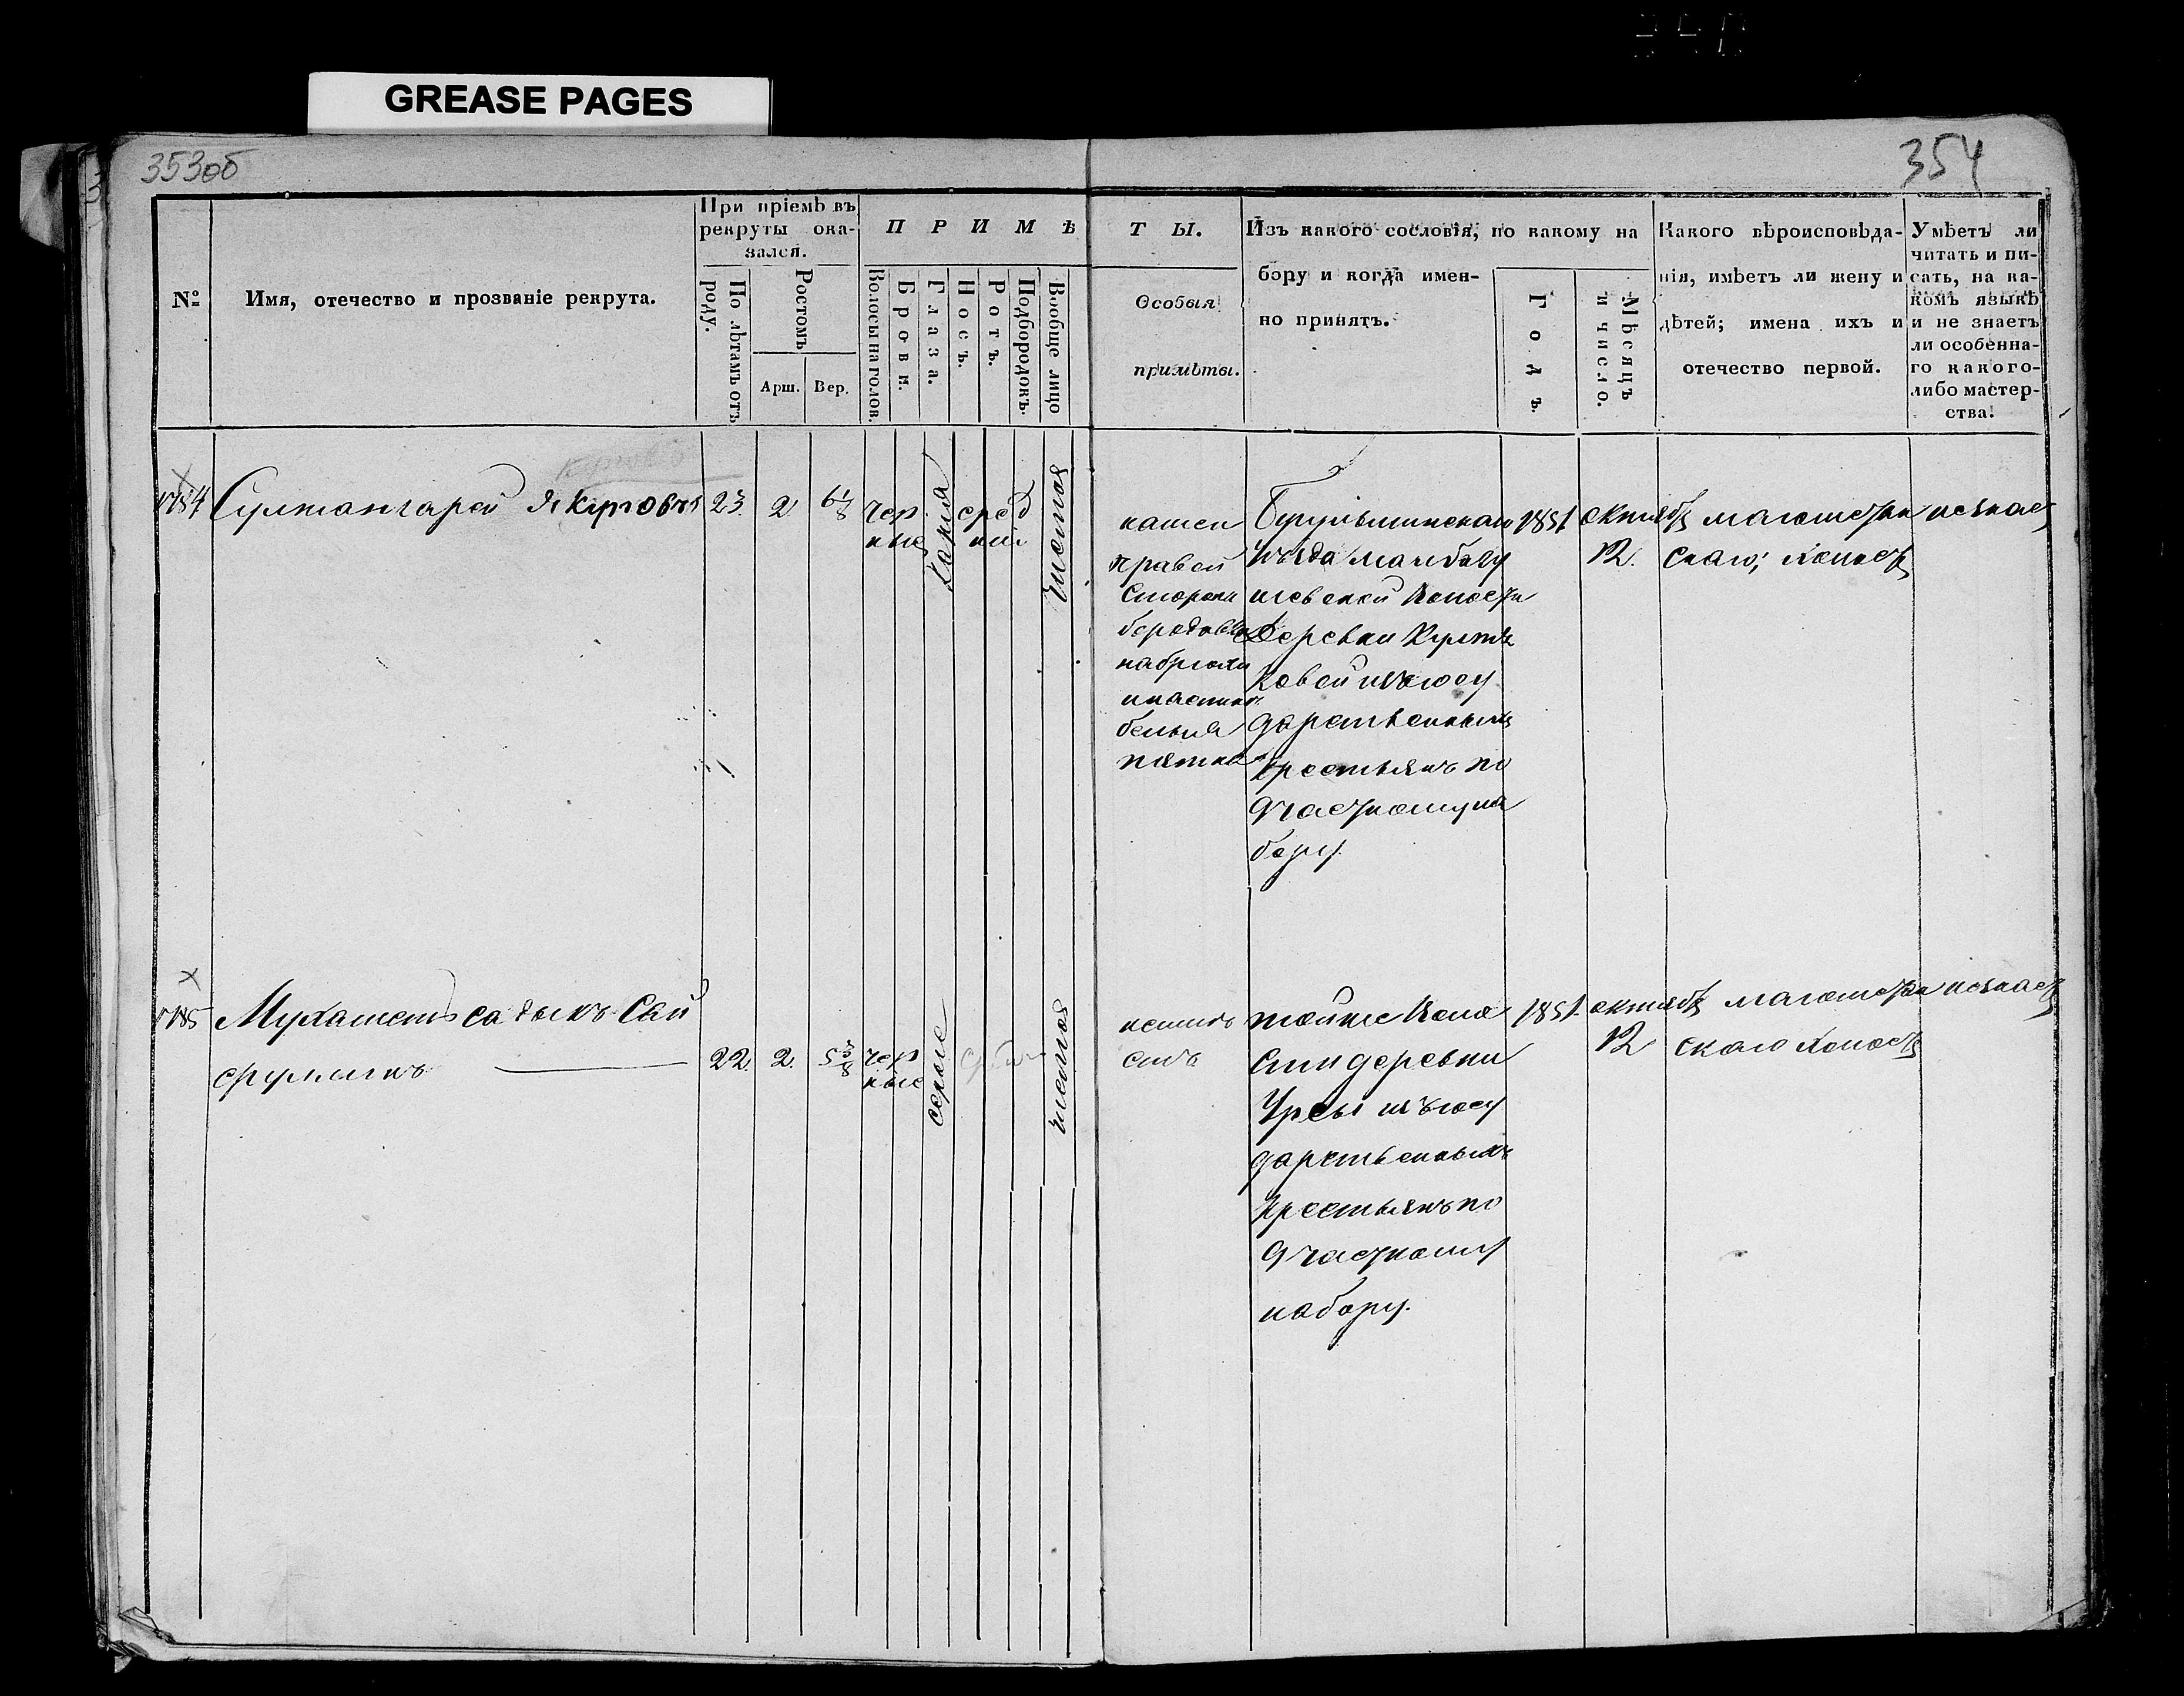 GREASE PAGES
353об
354
№
Имя, отечество и прозваніе рекрута.
При пріемѣ въ
рекруты ока-
зался.
По лѣтамъ отъ
роду.
Ростомъ
Арш.
Вер.
П Р И М Ѣ
Волосы на голов.
Брови.
Глаза.
Носъ.
Ротъ.
Подбородокъ.
Вообще лицо
Т Ы.
Особыя
примѣты.
Изъ какого сословія, по какому на
бору и когда имен-
но принятъ.
Годъ.
Мѣсяцъ
и число.
Какого вѣроисповѣда-
нія, имѣетъ ли жену и
дѣтей; имена ихъ и
отечество первой.
Умѣетъ ли
читать и пи-
сать, на ка-
комъ языкѣ
и не знаетъ
ли особенна-
го какого-
либо мастер-
ства.
1784
Султангарей Якуповъ
23
2
6 1/8
чер
ные
Карія
сред
ній
чистое
на шеи
правой
стороны
бородавка
на брюхи
белыя
пятна
Бугульминскаго
уѣзда
шевской волости
Деревни
ковой изъ госу
дарственныхъ
крестьянъ по
участкому на
бору
1851
октябр
12.
магомета
скаго, холост
незнает
1785
Мухаметь садыкъ Сай
фулинъ
22.
2.
5 3/8
чер
ные
серые
чистое
тойже воло
сти деревни
Урсы изъ госу
дарственныхъ
крестьянъ по
участкому
набору.
1851
октябр
12
магомета
скаго холост
незнает